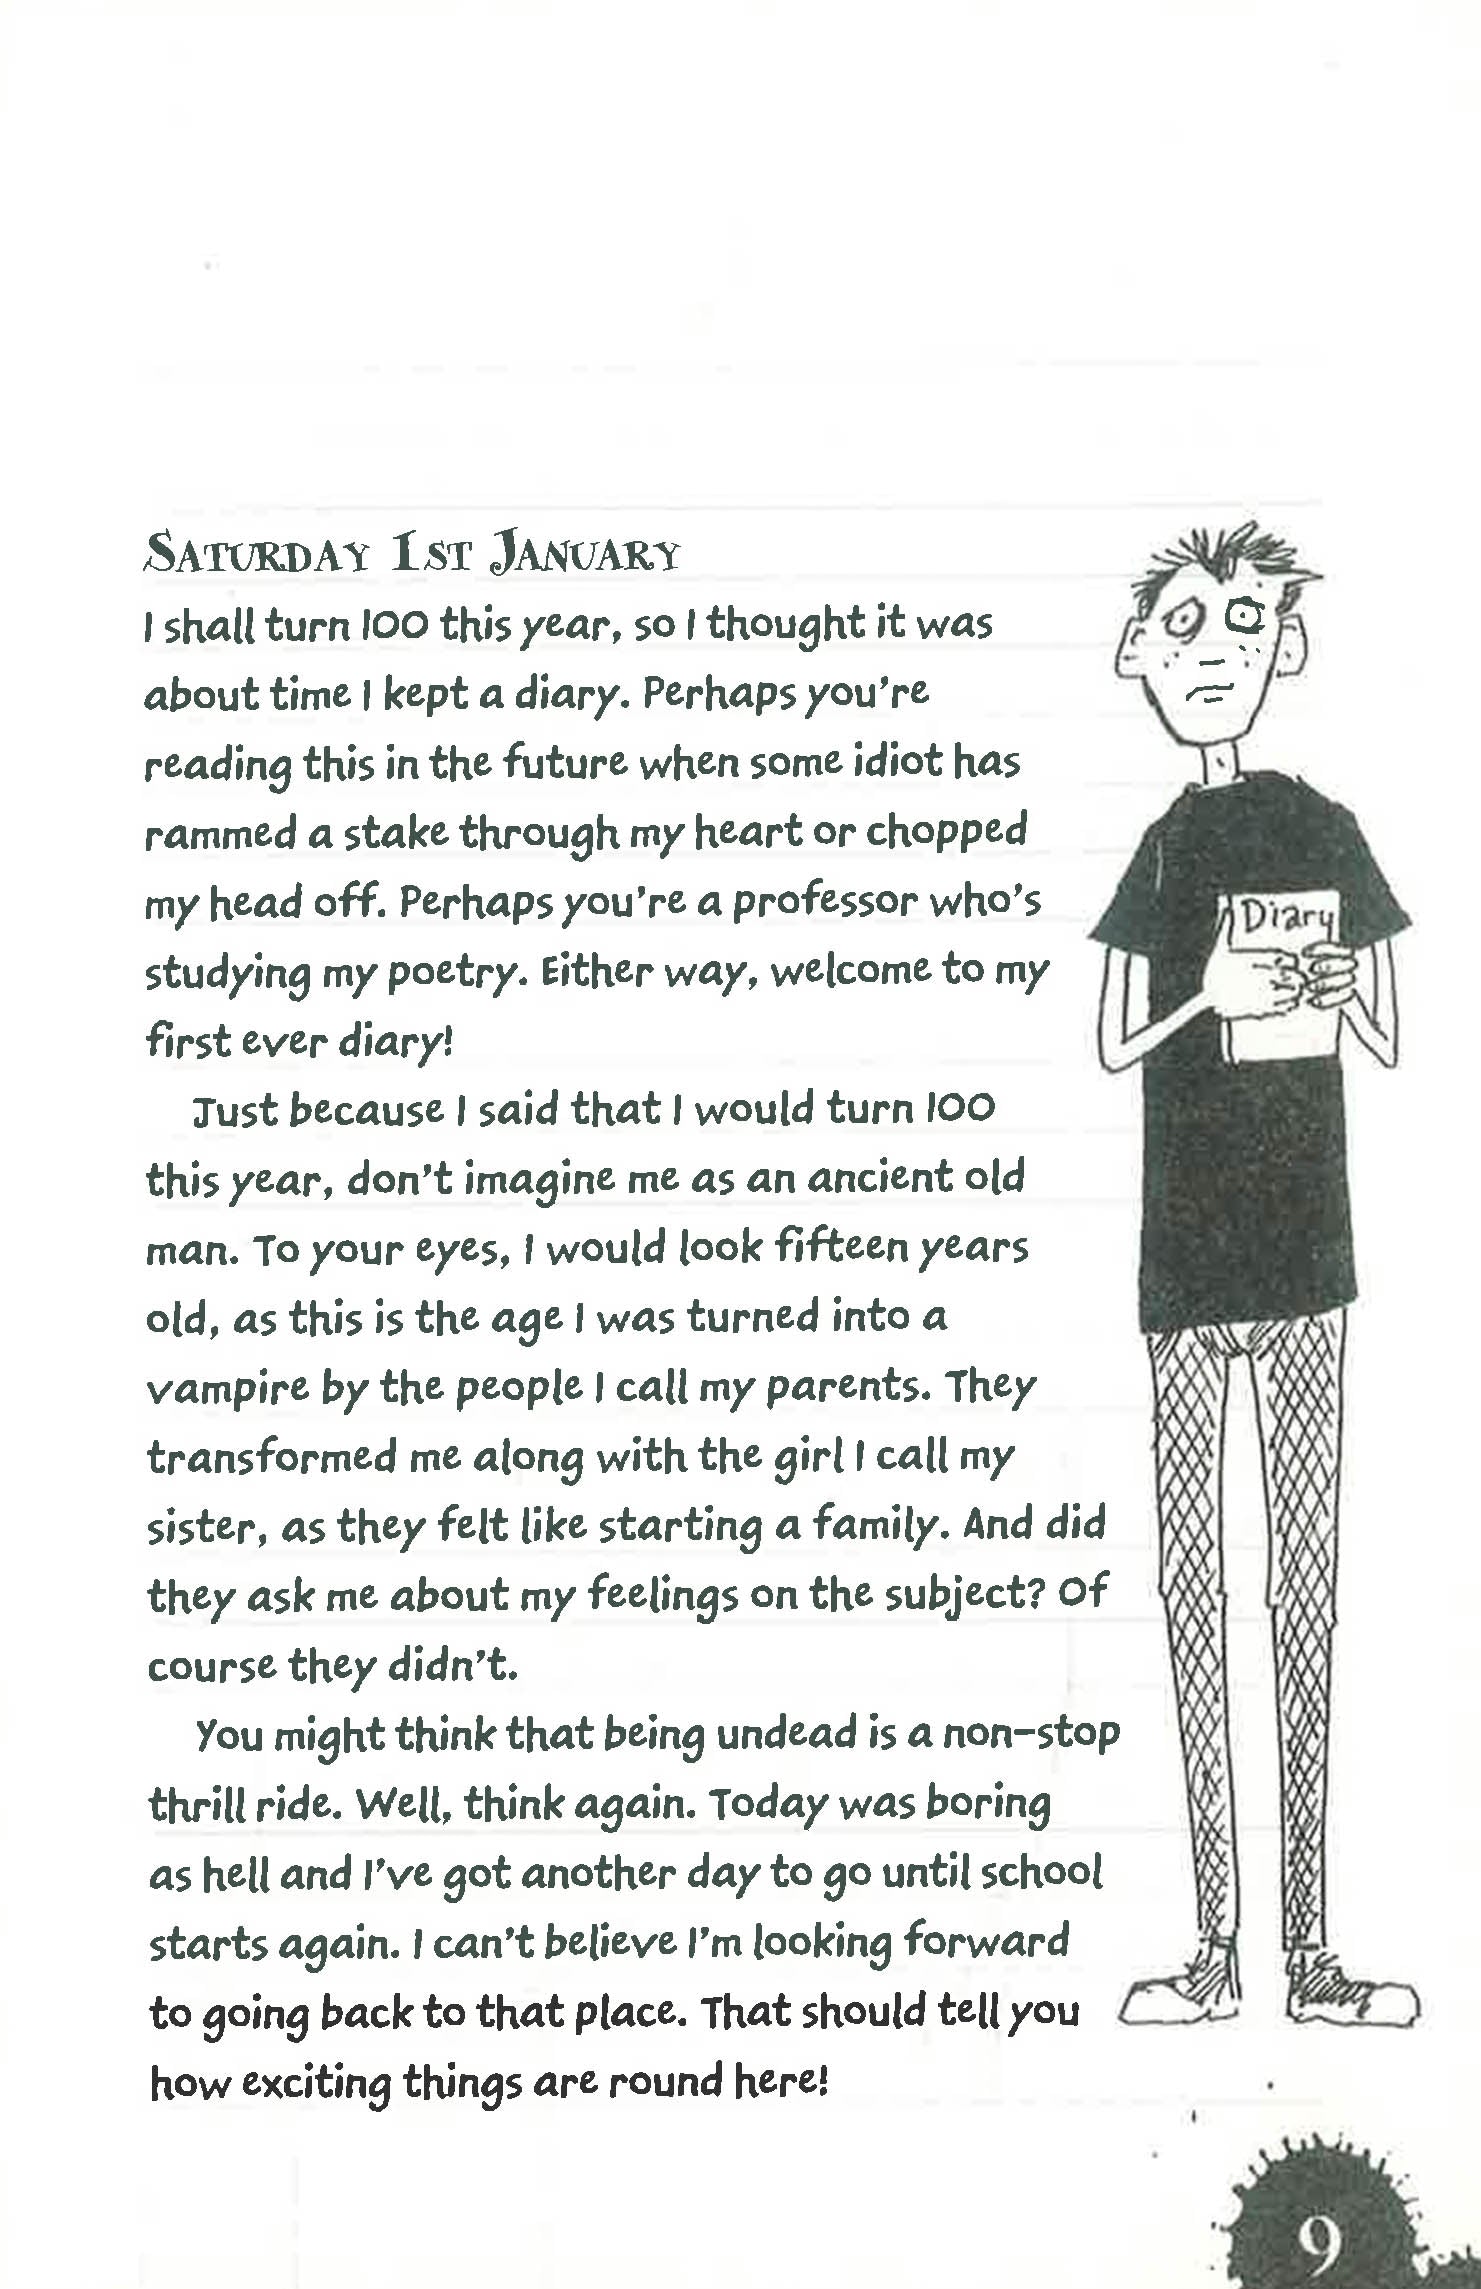 Saturday 1st January
I shall turn 100 this year, so I thought it was
about time I kept a diary. Perhaps you're
reading this in the future when some idiot has
rammed a stake through my heart or chopped
my head off. Perhaps you're a professor who's
studying my poetry. Either way, welcome to my
first ever diary!
Just because I said that I would turn 100
this year, don't imagine me as an ancient old
man. To your eyes, I would look fifteen years
old, as this is the age I was turned into a
vampire by the people I call my parents. They
transformed me along with the girl I call my
sister, as they felt like starting a family. And did
they ask me about my feelings on the subject? Of
course they didn't.
You might think that being undead is a non-stop
thrill ride. Well, think again. Today was boring
as hell and I've got another day to go until school
starts again. I can't believe I'm looking forward
to going back to that place. That should tell you
how exciting things are round here!
Diary
9